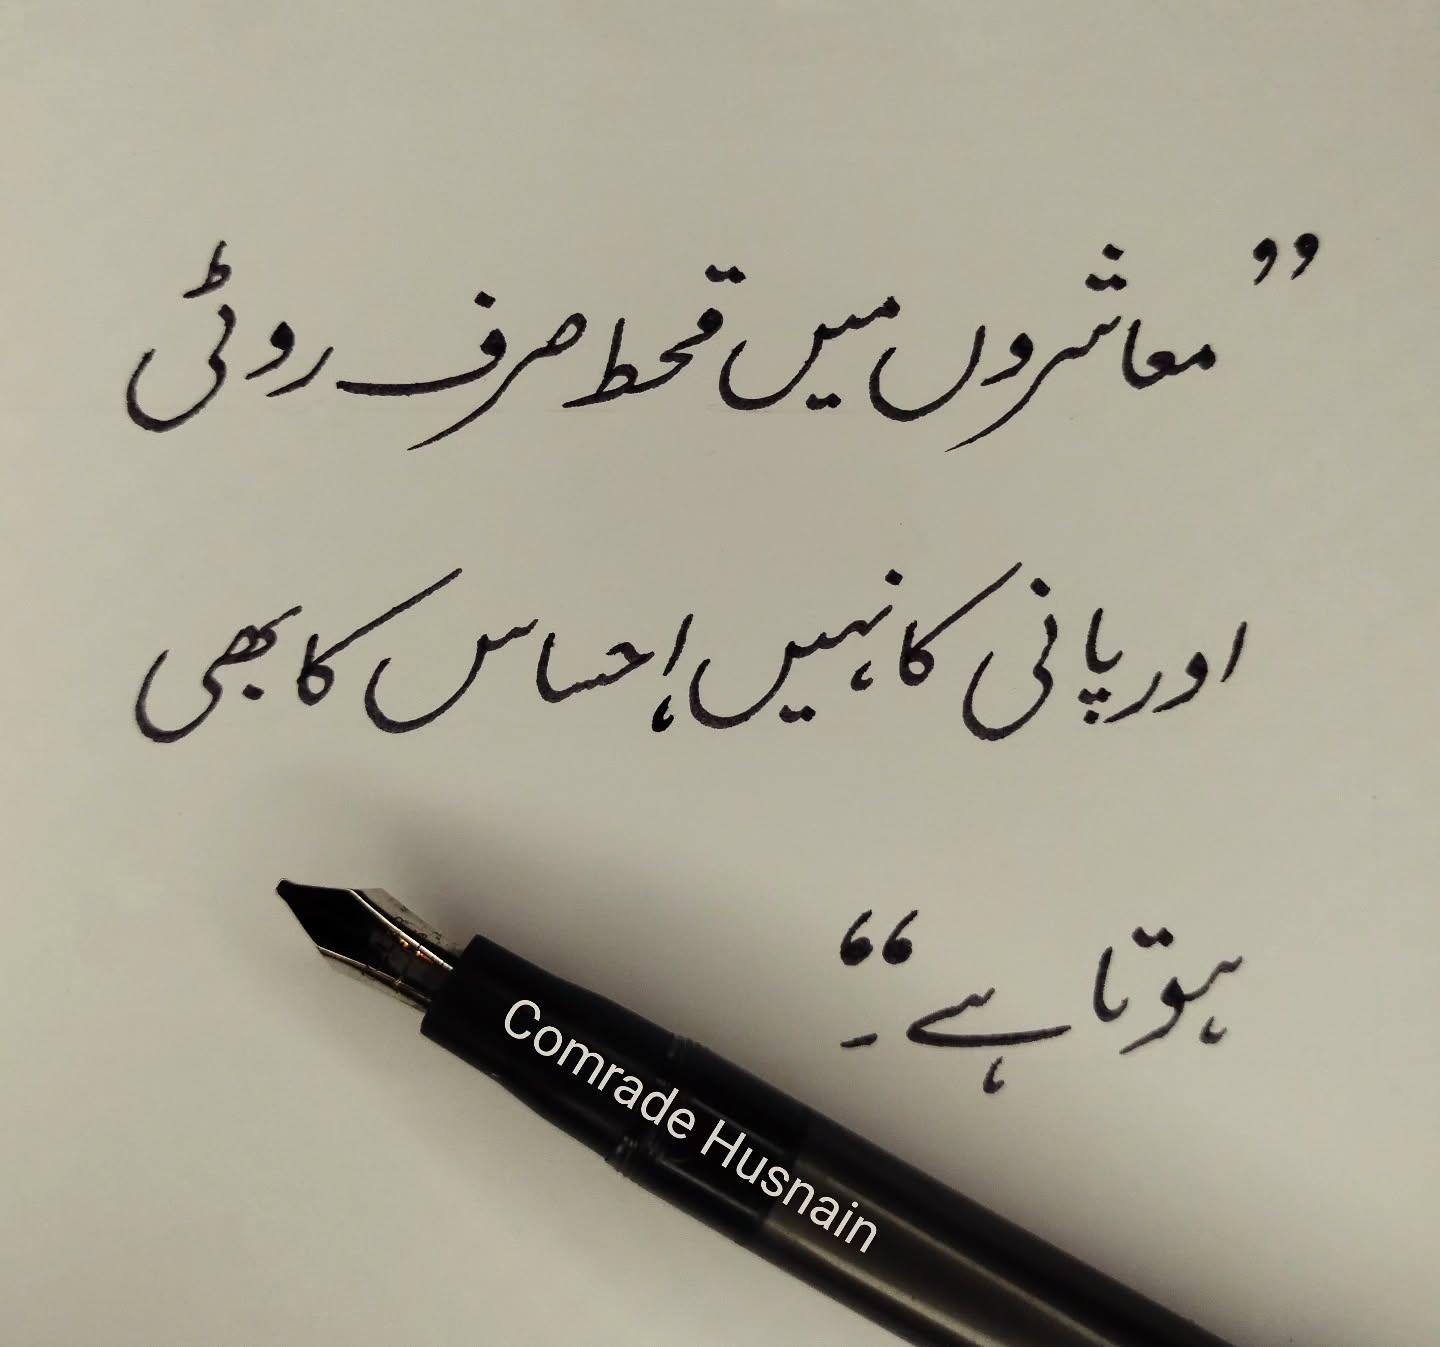 ”معاشروں میں قحط صرف روٹی
اور پانی کا نہیں اِحساس کا بھی
ہوتا ہے“۔
Comrade Husnain